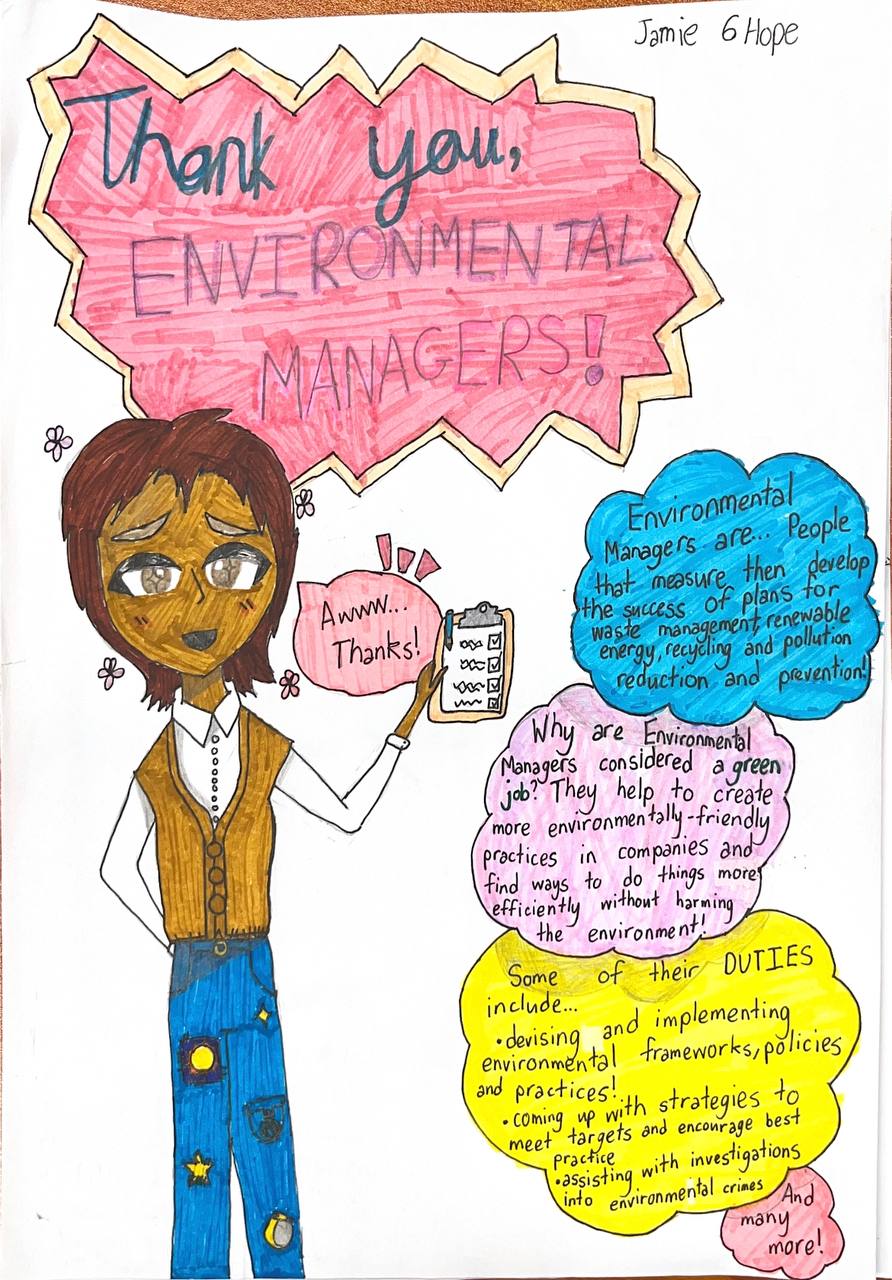 Jamie 6 Hope
Thank you,
ENVIRONMENTAL
MANAGERS!
Awww...
Thanks!
Environmental
Managers are... People
that measure then develop
the success of plans for
waste management, renewable
energy, recycling and pollution
reduction and prevention!
Why are Environmental
Managers considered a green
job? They help to create
more environmentally-friendly
practices in companies and
find ways to do things more
efficiently without harming
the environment!
Some of their DUTIES
include...
•devising and implementing
environmental frameworks, policies
and practices!
•coming up with strategies to
meet targets and encourage best
practice
•assisting with investigations
into environmental crimes
And
many
more!